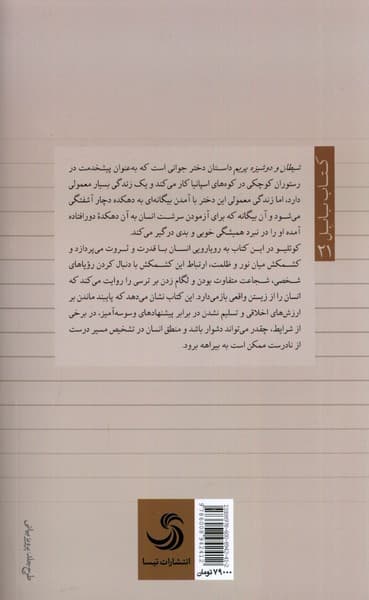 کتاب بابل
شیطان و دوشیزه پریم داستان دختر جوانی است که به‌عنوان پیشخدمت در
رستوران کوچکی در کوه‌های اسپانیا کار می‌کند و یک زندگی بسیار معمولی
دارد، اما زندگی معمولی این دختر با آمدن بیگانه‌ای به دهکده دچار آشفتگی
می‌شود و آن بیگانه که برای آزمودن سرشت انسان به آن دهکدهٔ دورافتاده
آمده او را در نبرد همیشگی خوبی و بدی درگیر می‌کند.
کوئلیو در این کتاب به رویارویی انسان با قدرت و ثروت می‌پردازد و
کشمکش میان نور و ظلمت، ارتباط این کشمکش با دنبال کردن رؤیاهای
شخصی، شجاعت متفاوت بودن و لگام زدن بر ترسی را روایت می‌کند که
انسان را از زیستن واقعی بازمی‌دارد. این کتاب نشان می‌دهد که پایبند ماندن بر
ارزش‌های اخلاقی و تسلیم نشدن در برابر پیشنهادهای وسوسه‌آمیز، در برخی
از شرایط، چقدر می‌تواند دشوار باشد و منطق انسان در تشخیص مسیر درست
از نادرست ممکن است به بیراهه برود.
انتشارات تیسا
۷۹۰۰۰ تومان
طرح جلد: پرویز بیانی